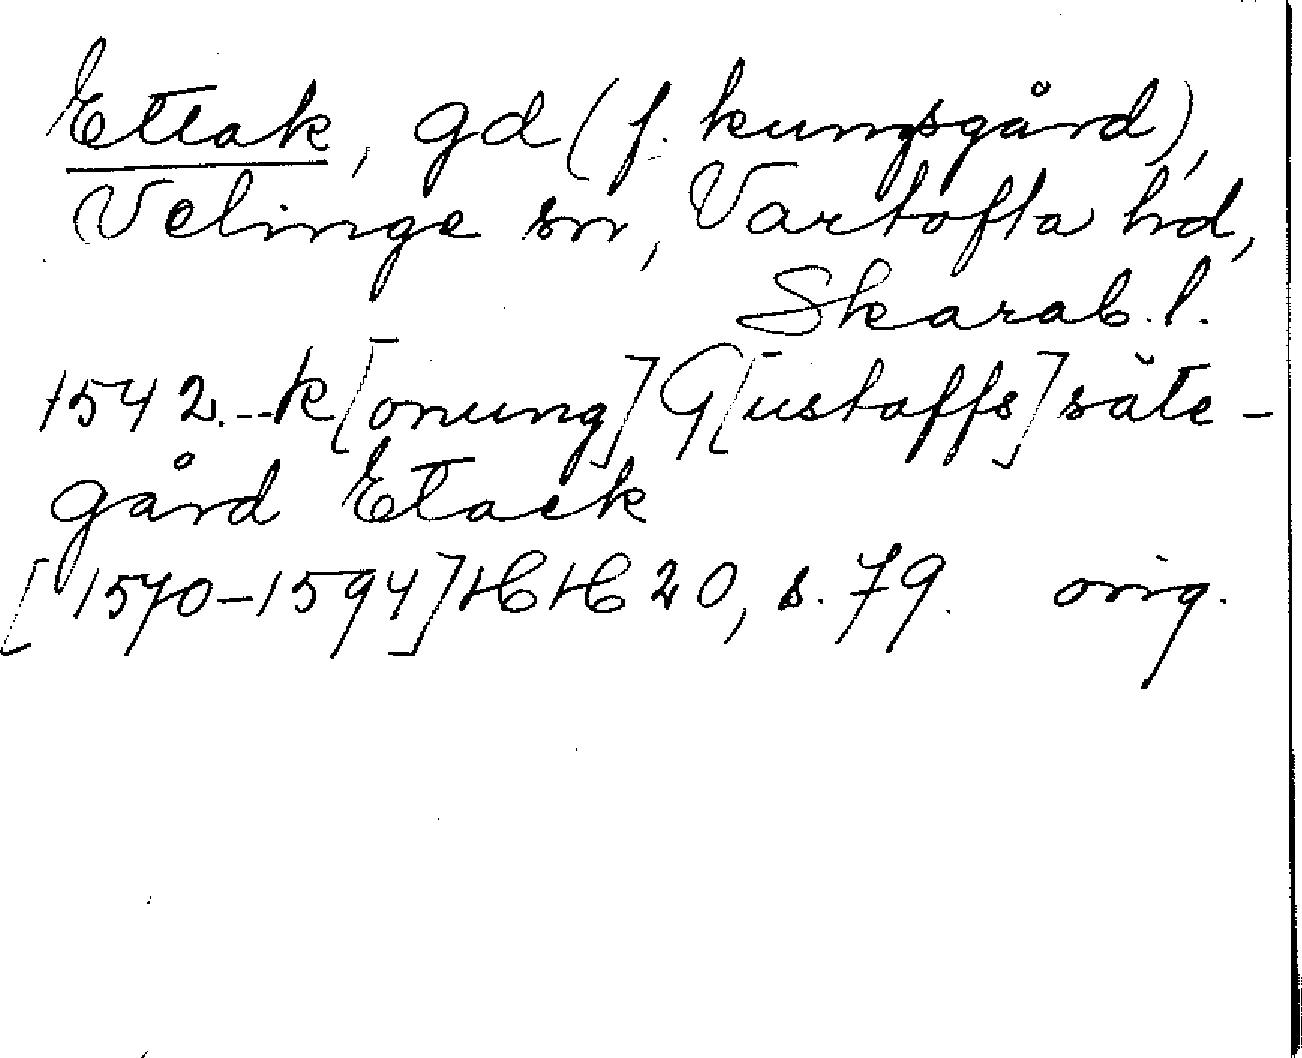 Ettak, gd (f. kungsgård),
Velinge sn, Vartofta hd,
Skarab. l.
1542.--k[onung] G[ustaffs] säte-
gård Etack
[1570-1594] HH 20, s. 79. orig.